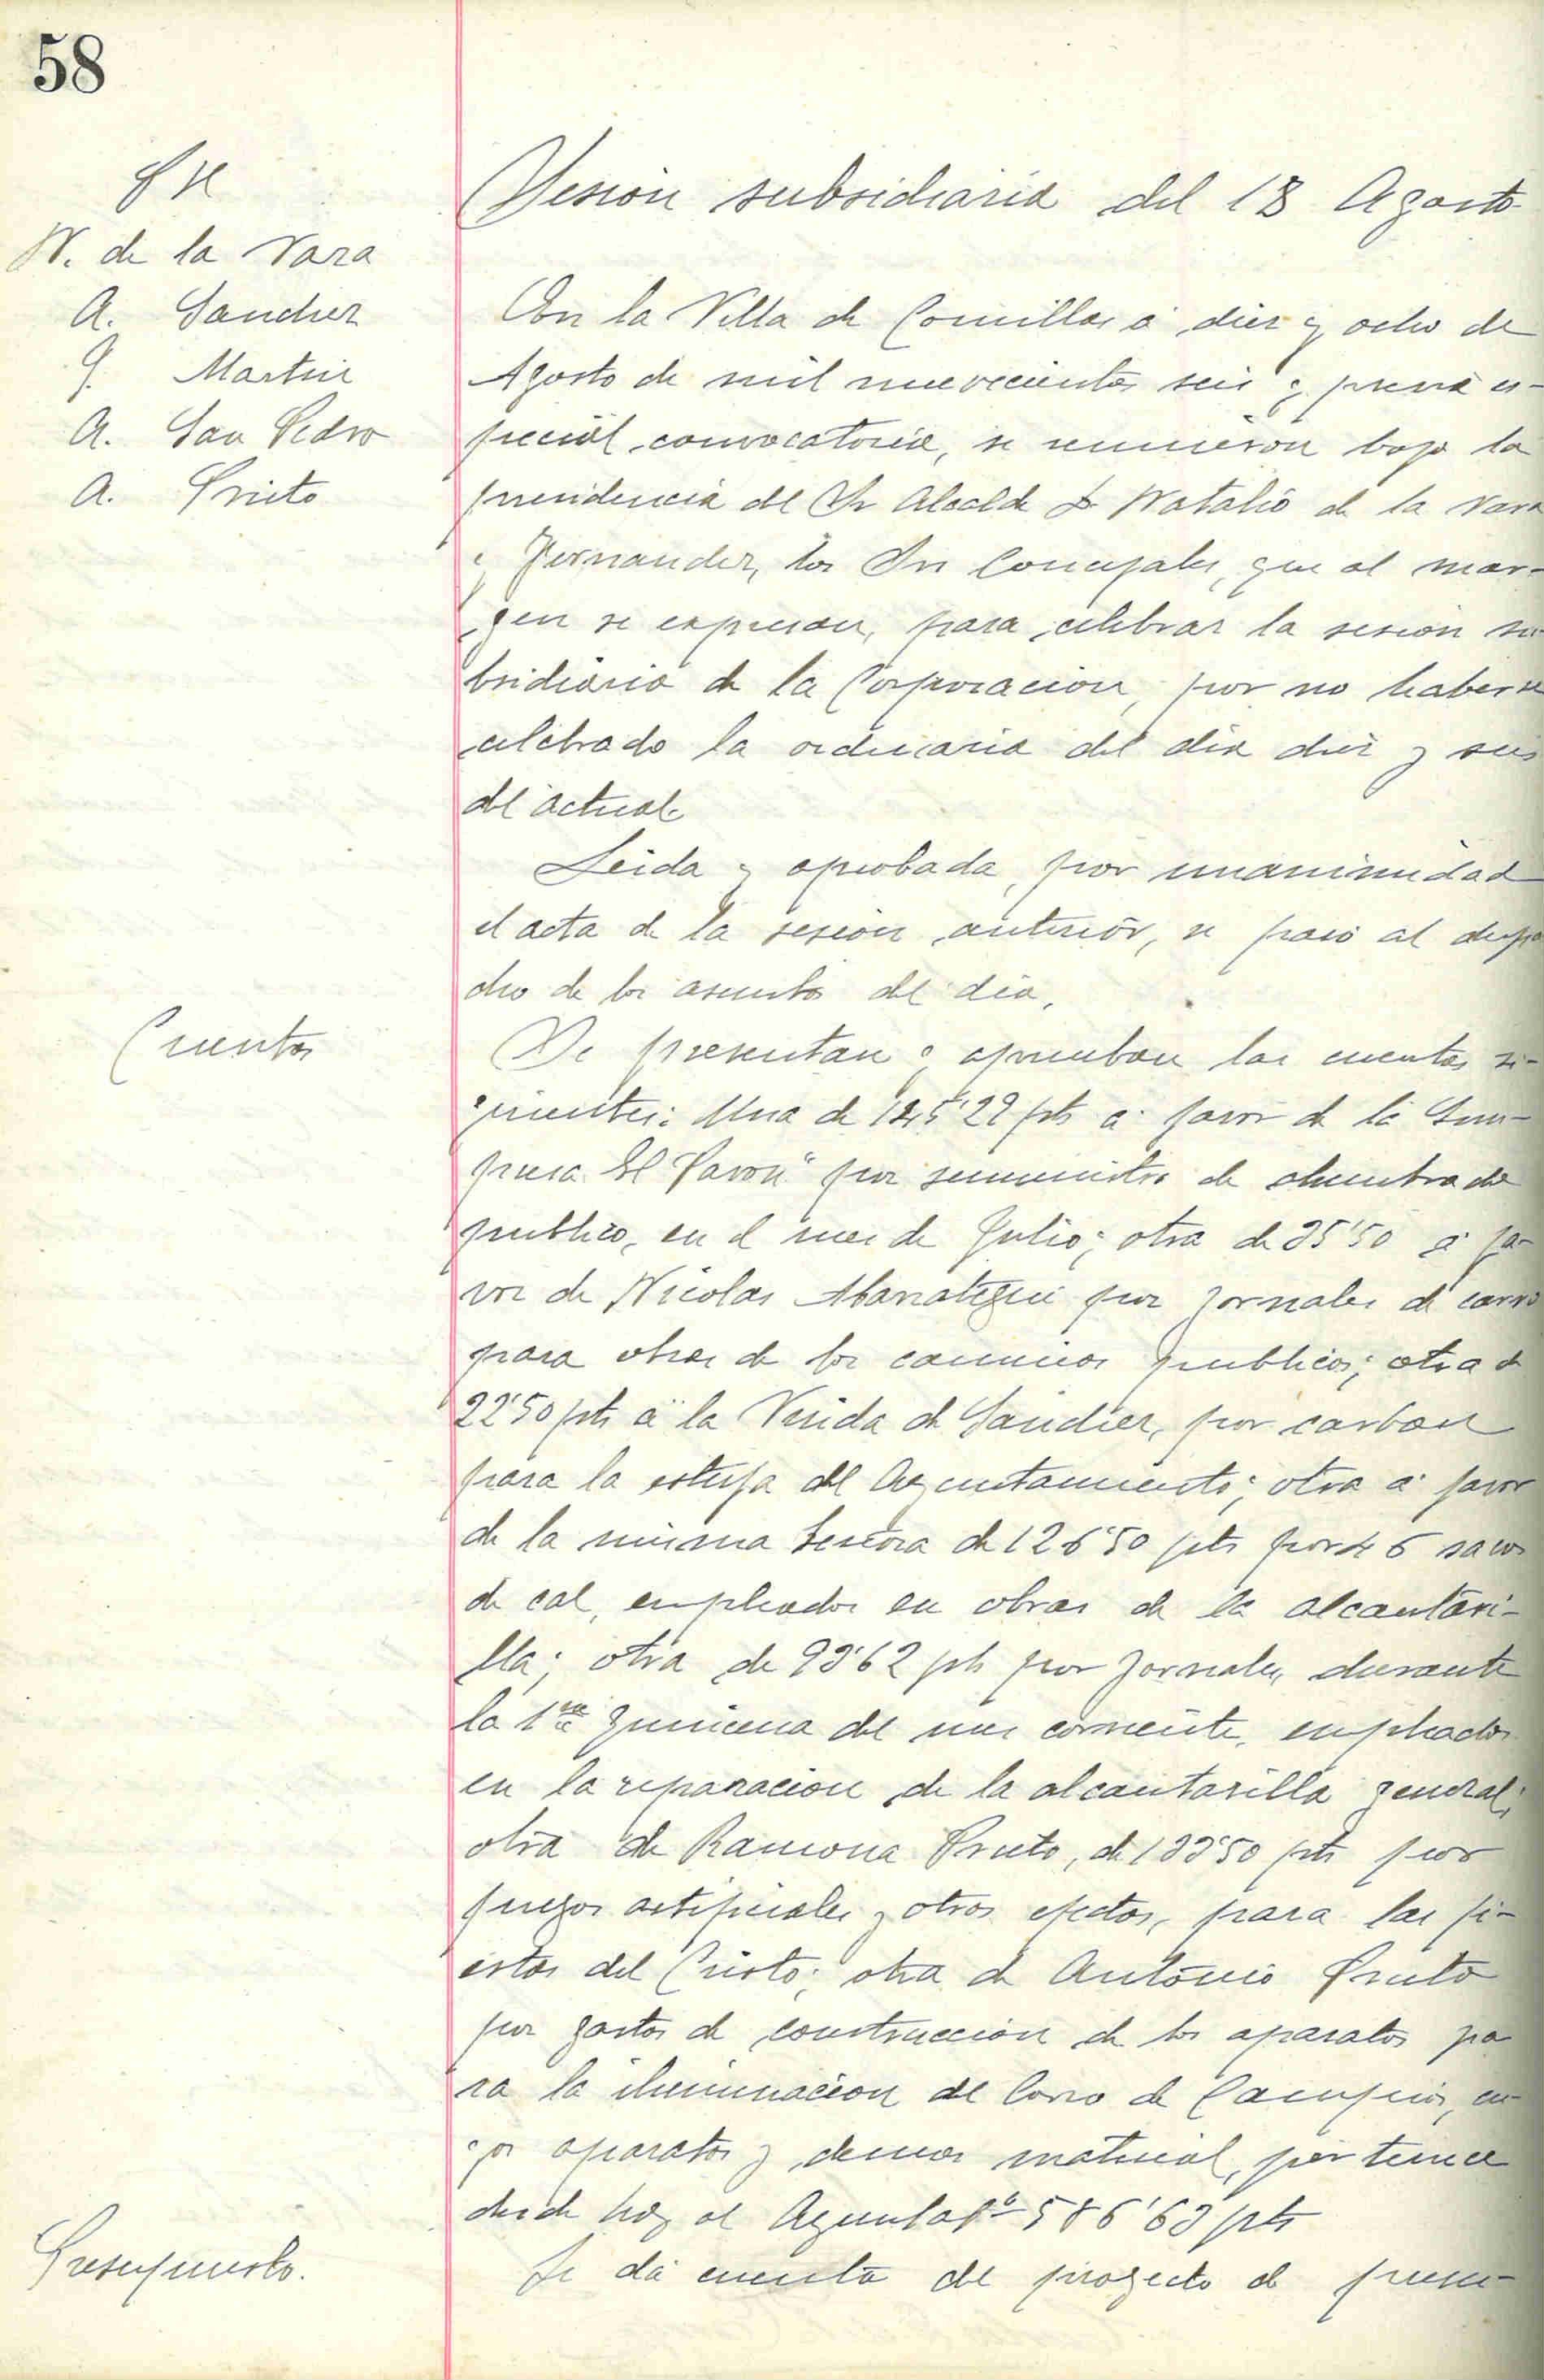 58
Sres
N. de la Vara
A. Sanchez
J. Martin
A. San Pedro
A. Prieto
Sesion subsidiaria del 18 Agosto
En la Villa de Comillas á diez y ocho de
Agosto de mil nuevecientos seis y previa es-
pecial convocatoria, se reunieron bajo la
presidencia del Sr Alcalde D. Natalio de la Vara
y Fernandez, los Srs Concejales, que al mar-
gen se expresan, para celebrar la sesion su-
bsidiaria de la Corporacion, por no haberse
celebrado la ordinaria del dia diez y seis
del actual.
Leida y aprobada, por unanimidad
el acta de la sesion anterior, se pasó al despa
cho de los asuntos del dia.
Cuentas
Se presentan y aprueban las cuentas si-
guientes: Una de 125'29 pts a favor de la Em-
presa El Pavon" por suministro de alumbrado
publico, en el mes de Julio; otra de 35'50 á fa-
vor de Nicolas Abarategui por jornales de carro
para obras de los caminos publicos; otra de
22'50 pts á la Viuda de Sanchez, por carbon
para la estufa del Ayuntamiento; otra á favor
de la misma Señora de 126'50 pts por 46 sacos
de cal, empleados en obras de la alcantari-
lla; otra de 93'62 pts por jornales, durante
la 1ra quincena del mes corriente, empleados
en la reparacion de la alcantarilla general;
otra de Ramona Prieto, de 133'50 pts por
fuegos artificiales y otros efectos, para las fi-
estas del Cristo; otra de Antonio Prieto
por gastos de construccion de los aparatos pa
ra la iluminacion del Corro de Campios, cu-
yos aparatos y demas material, pertenece
desde hoy al Ayuntapto 586'63 pts
Presupuesto.
Se dá cuenta del proyecto de presu-